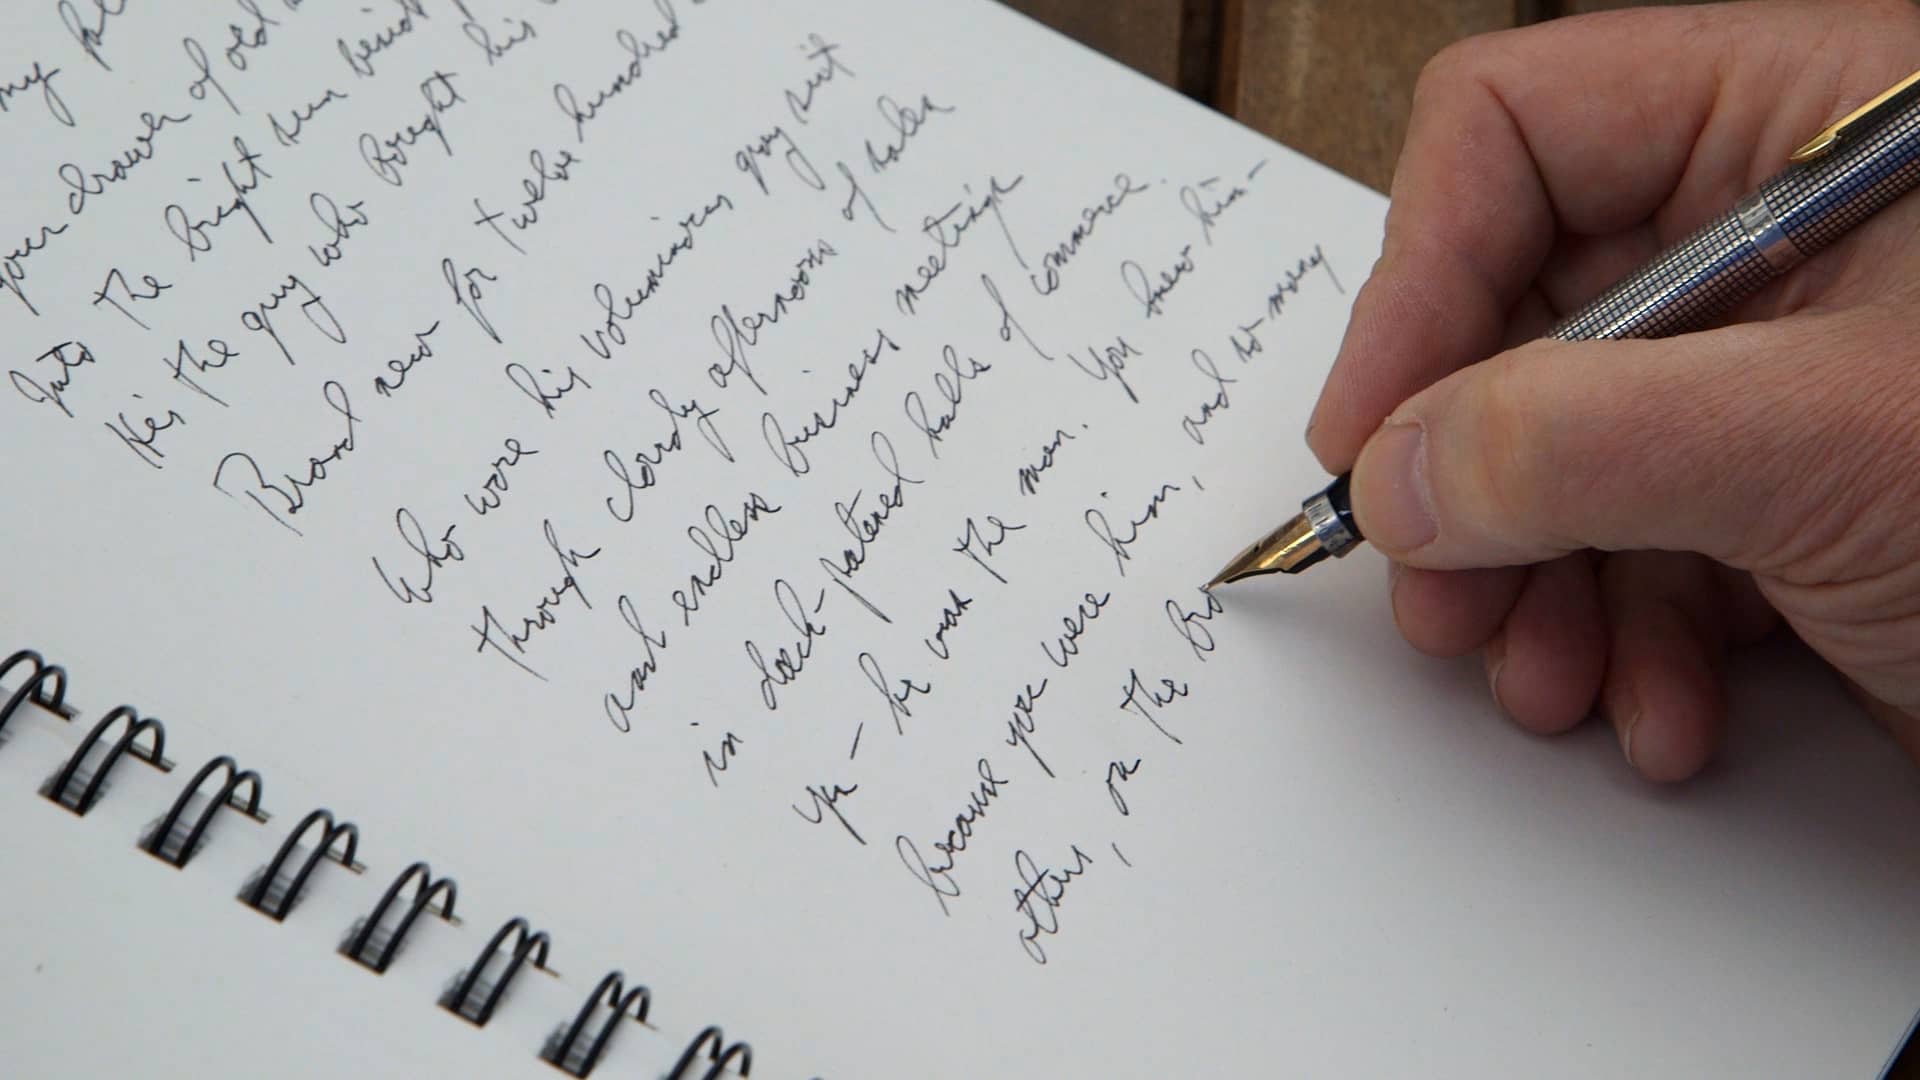 my
your drawer of old
Into the bright sun beside
He's the guy who bought his
Brand new for twelve hundred
Who wore his voluminous gray suit
through cloudy afternoons of sales
and endless business meetings
in dark-patened halls of commerce.
Ya – he was the man. You knew him –
because you were him, and so many
others, on the Bro